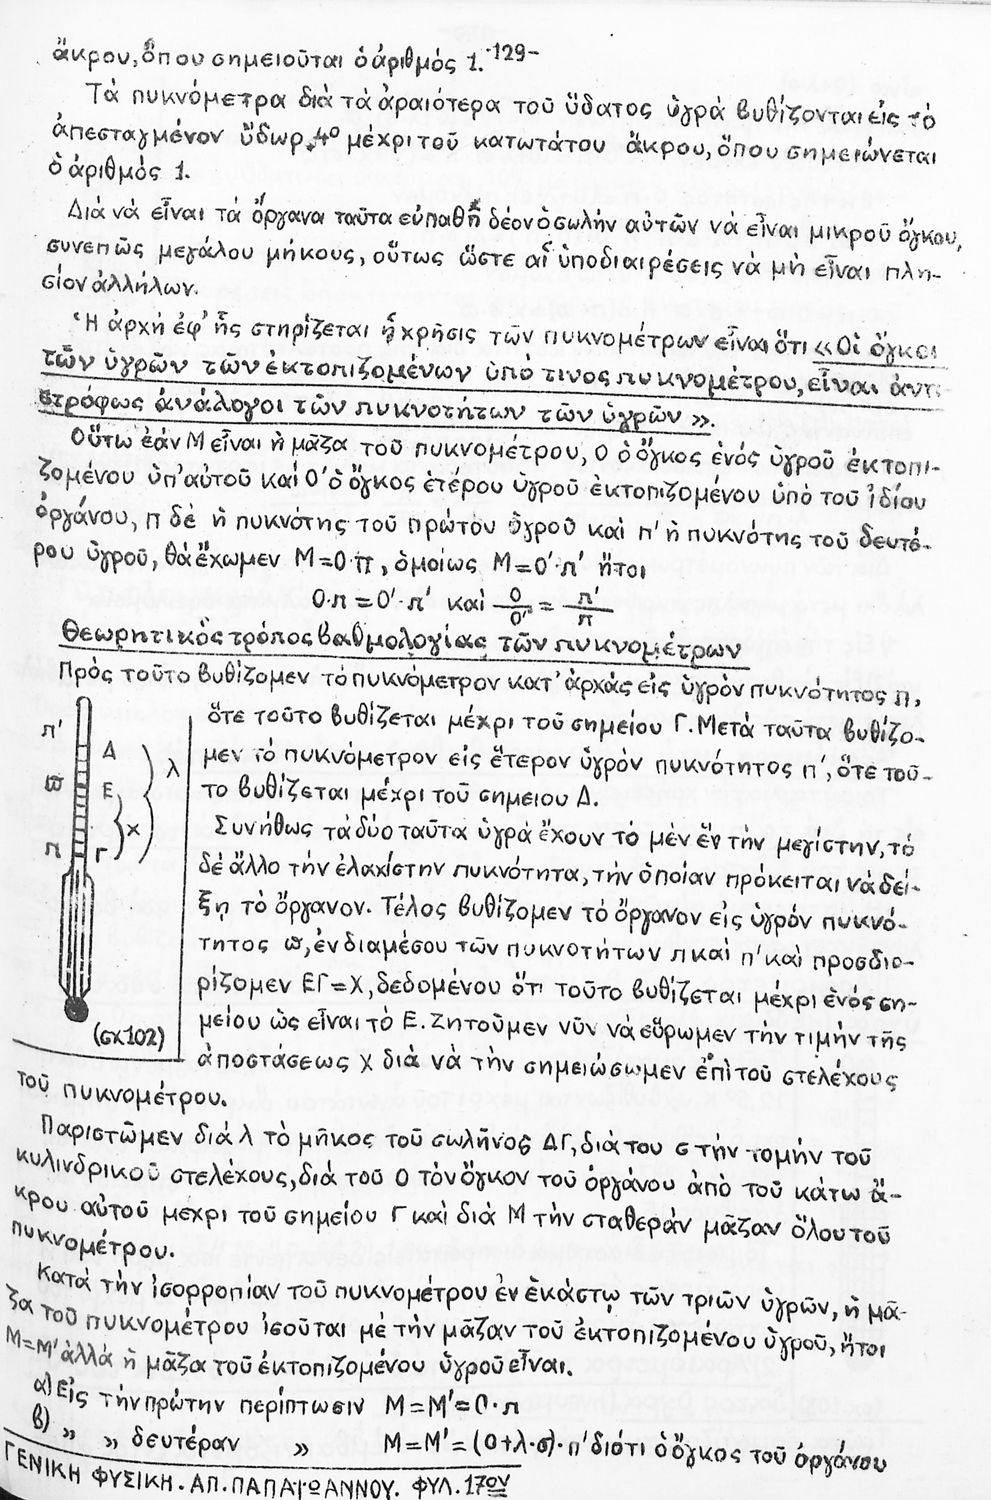 ἄκρου, ὅπου σημειοῦται ὁ ἀριθμός 1. -129-
Τά πυκνόμετρα διά τά ἀραιότερα τοῦ ὕδατος ὑγρά βυθίζονται εἰς τό
ἀπεσταγμένον ὕδωρ 4⁰ μέχρι τοῦ κατωτάτου ἄκρου, ὅπου σημειώνεται
ὁ ἀριθμός 1.
Διά νά εἶναι τά ὄργανα ταῦτα εὐπαθῆ δέον ὁ σωλήν αὐτῶν νά εἶναι μικροῦ ὄγκου,
συνεπῶς μεγάλου μήκους, οὕτως ὥστε αἱ ὑποδιαιρέσεις νά μή εἶναι πλη-
σίον ἀλλήλων.
Ἡ ἀρχή ἐφ' ἧς στηρίζεται ἡ χρῆσις τῶν πυκνομέτρων εἶναι ὅτι «Οἱ ὄγκοι
τῶν ὑγρῶν τῶν ἐκτοπιζομένων ὑπό τινος πυκνομέτρου, εἶναι ἀντι-
στρόφως ἀνάλογοι τῶν πυκνοτήτων τῶν ὑγρῶν».
Οὕτω ἐάν Μ εἶναι ἡ μᾶζα τοῦ πυκνομέτρου, Ο ὁ ὄγκος ἑνός ὑγροῦ ἐκτοπι-
ζομένου ὑπ' αὐτοῦ καί Ο' ὁ ὄγκος ἑτέρου ὑγροῦ ἐκτοπιζομένου ὑπό τοῦ ἰδίου
ὀργάνου, π δέ ἡ πυκνότης τοῦ πρώτου ὑγροῦ καί π' ἡ πυκνότης τοῦ δευτέ-
ρου ὑγροῦ, θά ἔχωμεν Μ=Ο·π, ὁμοίως Μ=Ο'·π' ἤτοι
Ο·π=Ο'·π' καί Ο/Ο' = π'/π
Θεωρητικός τρόπος βαθμολογίας τῶν πυκνομέτρων
Πρός τοῦτο βυθίζομεν τό πυκνόμετρον κατ' ἀρχάς εἰς ὑγρόν πυκνότητος π,
ὅτε τοῦτο βυθίζεται μέχρι τοῦ σημείου Γ. Μετά ταῦτα βυθίζο-
μεν τό πυκνόμετρον εἰς ἕτερον ὑγρόν πυκνότητος π', ὅτε τοῦ-
το βυθίζεται μέχρι τοῦ σημειου Δ.
Συνήθως τά δύο ταῦτα ὑγρά ἔχουν τό μέν ἕν τήν μεγίστην, τό
δέ ἄλλο τήν ἐλαχίστην πυκνότητα, τήν ὁποίαν πρόκειται νά δεί-
ξῃ τό ὄργανον. Τέλος βυθίζομεν τό ὄργανον εἰς ὑγρόν πυκνό-
τητος ϖ, ἐνδιαμέσου τῶν πυκνοτήτων π καί π' καί προσδιο-
ρίζομεν ΕΓ=Χ, δεδομένου ὅτι τοῦτο βυθίζεται μέχρι ἑνός ση-
μείου ὡς εἶναι τό Ε. Ζητοῦμεν νῦν νά εὕρωμεν τήν τιμήν τῆς
ἀποστάσεως χ διά νά τήν σημειώσωμεν ἐπί τοῦ στελέχους
π'
Δ
λ
ϖ
Ε
x
π
Γ
(σχ 102)
τοῦ πυκνομέτρου.
Παριστῶμεν διά λ τό μῆκος τοῦ σωλῆνος ΔΓ, διά του σ τήν τομήν τοῦ
κυλινδρικοῦ στελέχους, διά τοῦ Ο τόν ὄγκον τοῦ ὀργάνου ἀπό τοῦ κάτω ἄ-
κρου αὐτοῦ μεχρι τοῦ σημείου Γ καί διά Μ τήν σταθεράν μᾶζαν ὅλου τοῦ
πυκνομέτρου.
Κατά τήν ἰσορροπίαν τοῦ πυκνομέτρου ἐν ἑκάστῳ τῶν τριῶν ὑγρῶν, ἡ μᾶ-
ζα τοῦ πυκνομέτρου ἰσοῦται μέ τήν μᾶζαν τοῦ ἐκτοπιζομένου ὑγροῦ, ἤτοι
Μ=Μ' ἀλλά ἡ μᾶζα τοῦ ἐκτοπιζομένου ὑγροῦ εἶναι.
α) Εἰς τήν πρώτην περίπτωσιν Μ=Μ'=Ο·π
β) " " δευτέραν " Μ=Μ'=(Ο+λ·σ)·π' διότι ὁ ὄγκος τοῦ ὀργάνου
ΓΕΝΙΚΗ ΦΥΣΙΚΗ. ΑΠ. ΠΑΠΑΪΩΑΝΝΟΥ. ΦΥΛ. 17ον